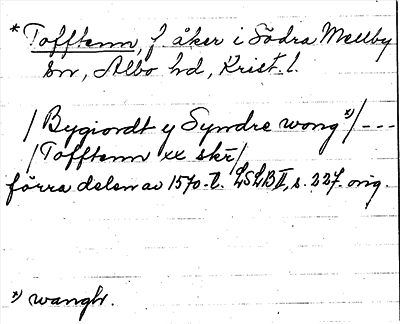 *Tofftenn, f åker i Södra Mellby
sn, Albo hd, Krist. l.
/Bygiordt y Syndre wong *)/---
/Tofftenn xx skr/
förra delen av 1570-t. LSLB II, s. 227. orig.
*) wangh.